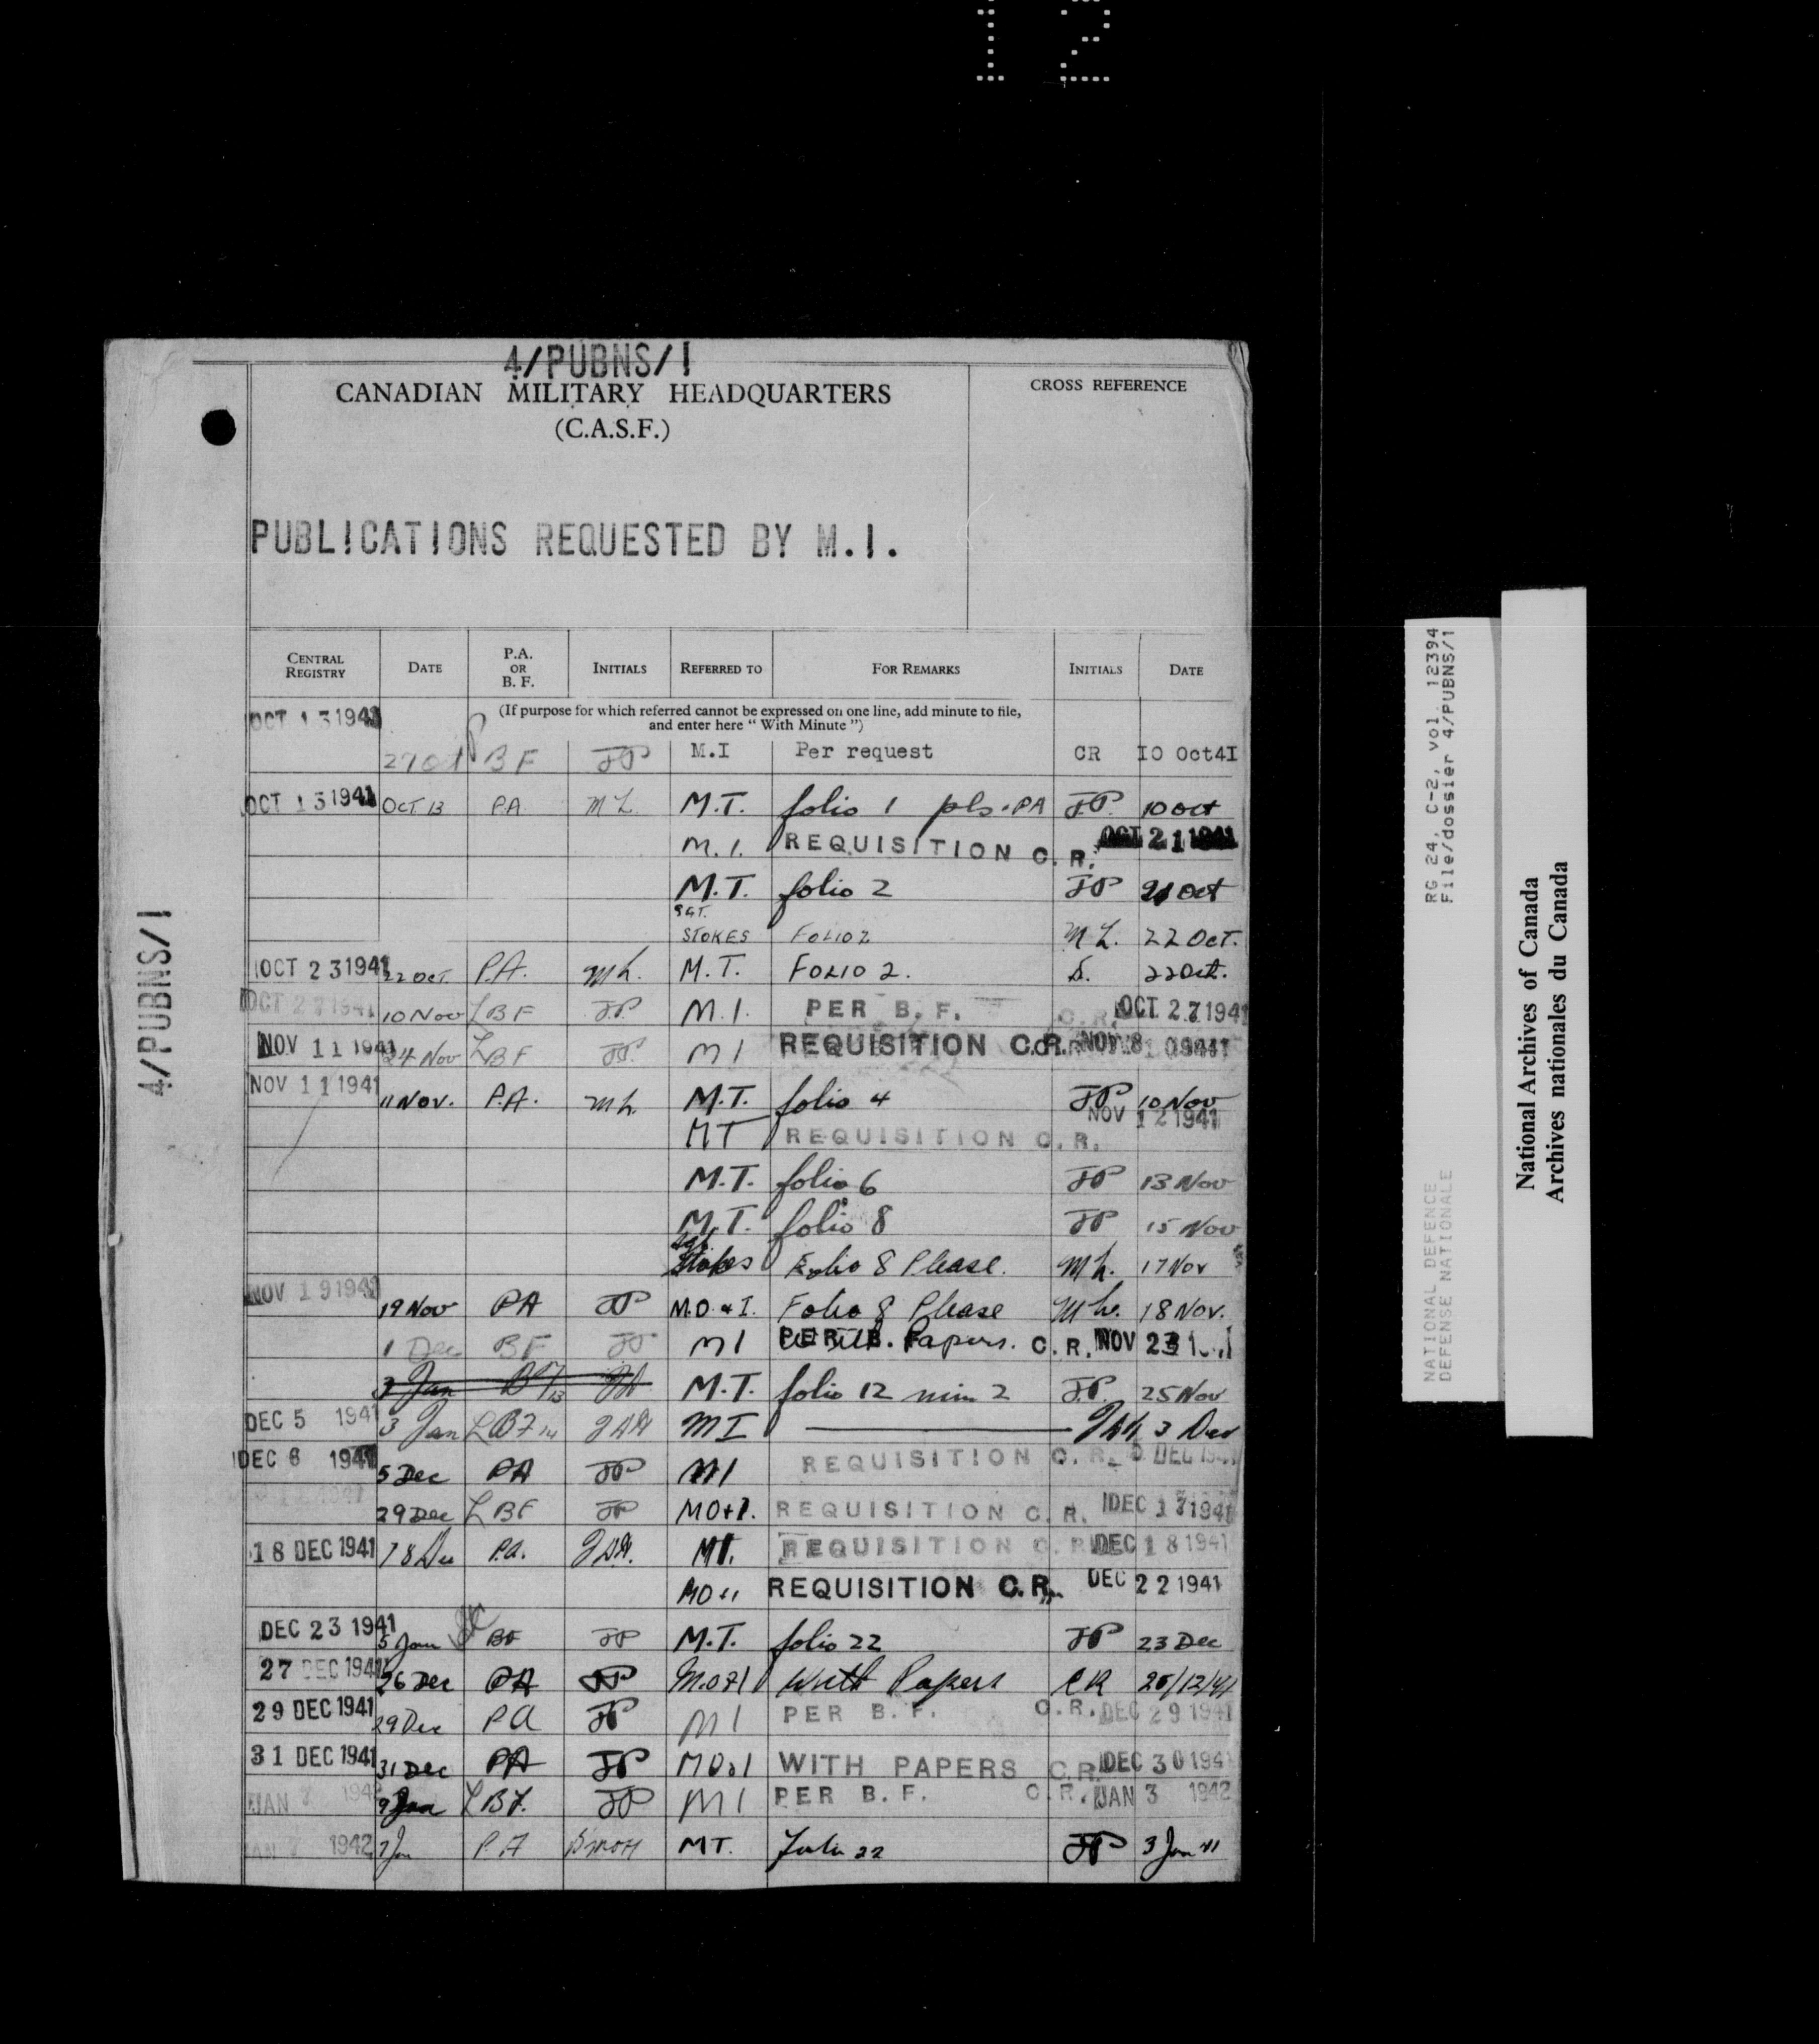 12
4/PUBNS/1
CANADIAN MILITARY HEADQUARTERS
(C.A.S.F.)
CROSS REFERENCE
PUBLICATIONS REQUESTED BY M.I.
CENTRAL REGISTRY DATE P.A. OR B. F. INITIALS REFERRED TO FOR REMARKS INITIALS DATE
(If purpose for which referred cannot be expressed on one line, add minute to file,
and enter here " With Minute ")
OCT 13 1941
27 Oct BF JP M.I Per request CR IO Oct4I
OCT 13 1941 OCT 13 P.A. M L. M.T. folio 1 pls. PA JP. 10 Oct
M.I. REQUISITION C.R. OCT 21 1941
M.T. folio 2 JP 21 Oct
SGT. STOKES FOLIO 2 M L. 22 OCT.
OCT 23 1941 22 OCT. P.A. M L. M.T. FOLIO 2. 22 Oct.
OCT 27 1941 10 Nov BF JP. M.I. PER B. F. C.R. OCT 27 1941
NOV 11 1941 24 Nov BF JP. MI REQUISITION C.R. NOV
NOV 11 1941 11 NOV. P.A. M L. M.T. folio 4 JP 10 Nov
MT REQUISITION C.R. NOV 12 1941
M.T. folio 6 JP 13 Nov
M.T. folio 8 JP 15 Nov
Sgt Stokes Folio 8 Please. M L. 17 Nov
NOV 19 1941 19 Nov PA JP M.O. & I. Folio 8 Please M L. 18 NOV.
1 Dec BF JP MI PER B. F. Papers. C.R. NOV 23
3 Jan BF/13 M.T. folio 12 min 2 J.P. 25 Nov
DEC 5 1941 3 Jan BF 14 MI 3 Dec
DEC 6 1941 5 Dec PA JP MI REQUISITION C.R. 5 DEC 1941
29 Dec BF JP MO+I. REQUISITION C.R. DEC 17 1941
18 DEC 1941 18 Dec P.A. MI. REQUISITION C.R. DEC 18 1941
MO+I REQUISITION C.R. DEC 22 1941
DEC 23 1941 5 Jan BF JP M.T. folio 22 JP 23 Dec
27 DEC 1941 26 Dec PA JP M.O&I With Papers CR 26/12/41
29 DEC 1941 29 Dec PA JP MI PER B. F. C.R. DEC 29 1941
31 DEC 1941 31 Dec PA JP MO&I WITH PAPERS C.R. DEC 30 1941
JAN 7 1942 9 Jan BF. JP MI PER B. F. C.R. JAN 3 1942
JAN 7 1942 7 Jan P.A MT. Folio 22 JP 3 Jan 41
4/PUBNS/1
RG 24, C-2, vol. 12394
File/dossier 4/PUBNS/1
NATIONAL DEFENCE
DEFENSE NATIONALE
National Archives of Canada
Archives nationales du Canada